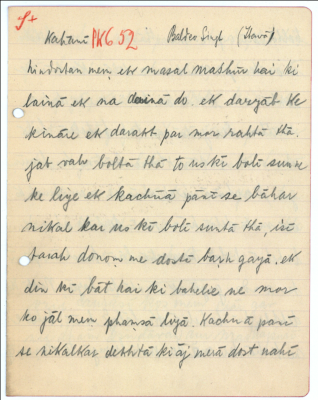 Kahānī PKG 52 Baldev Singh (Itavā)
hindostan meṃ ek masal mashūr hai ki
lainā ek na dainā do. ek daryāb ke
kināre ek darakt par mor rahtā thā.
jab vah boltā thā to us kī bolī sunne
ke liye ek kachuā pānī se bāhar
nikal kar us kī bolī suntā thā, isī
tarah donoṃ me dostī baṛh gayā. ek
din kī bāt hai ki bahelie ne mor
ko jāl meṃ phaṃsā liyā. Kachuā panī
se nikalkar dekhtā ki āj merā dost nahī